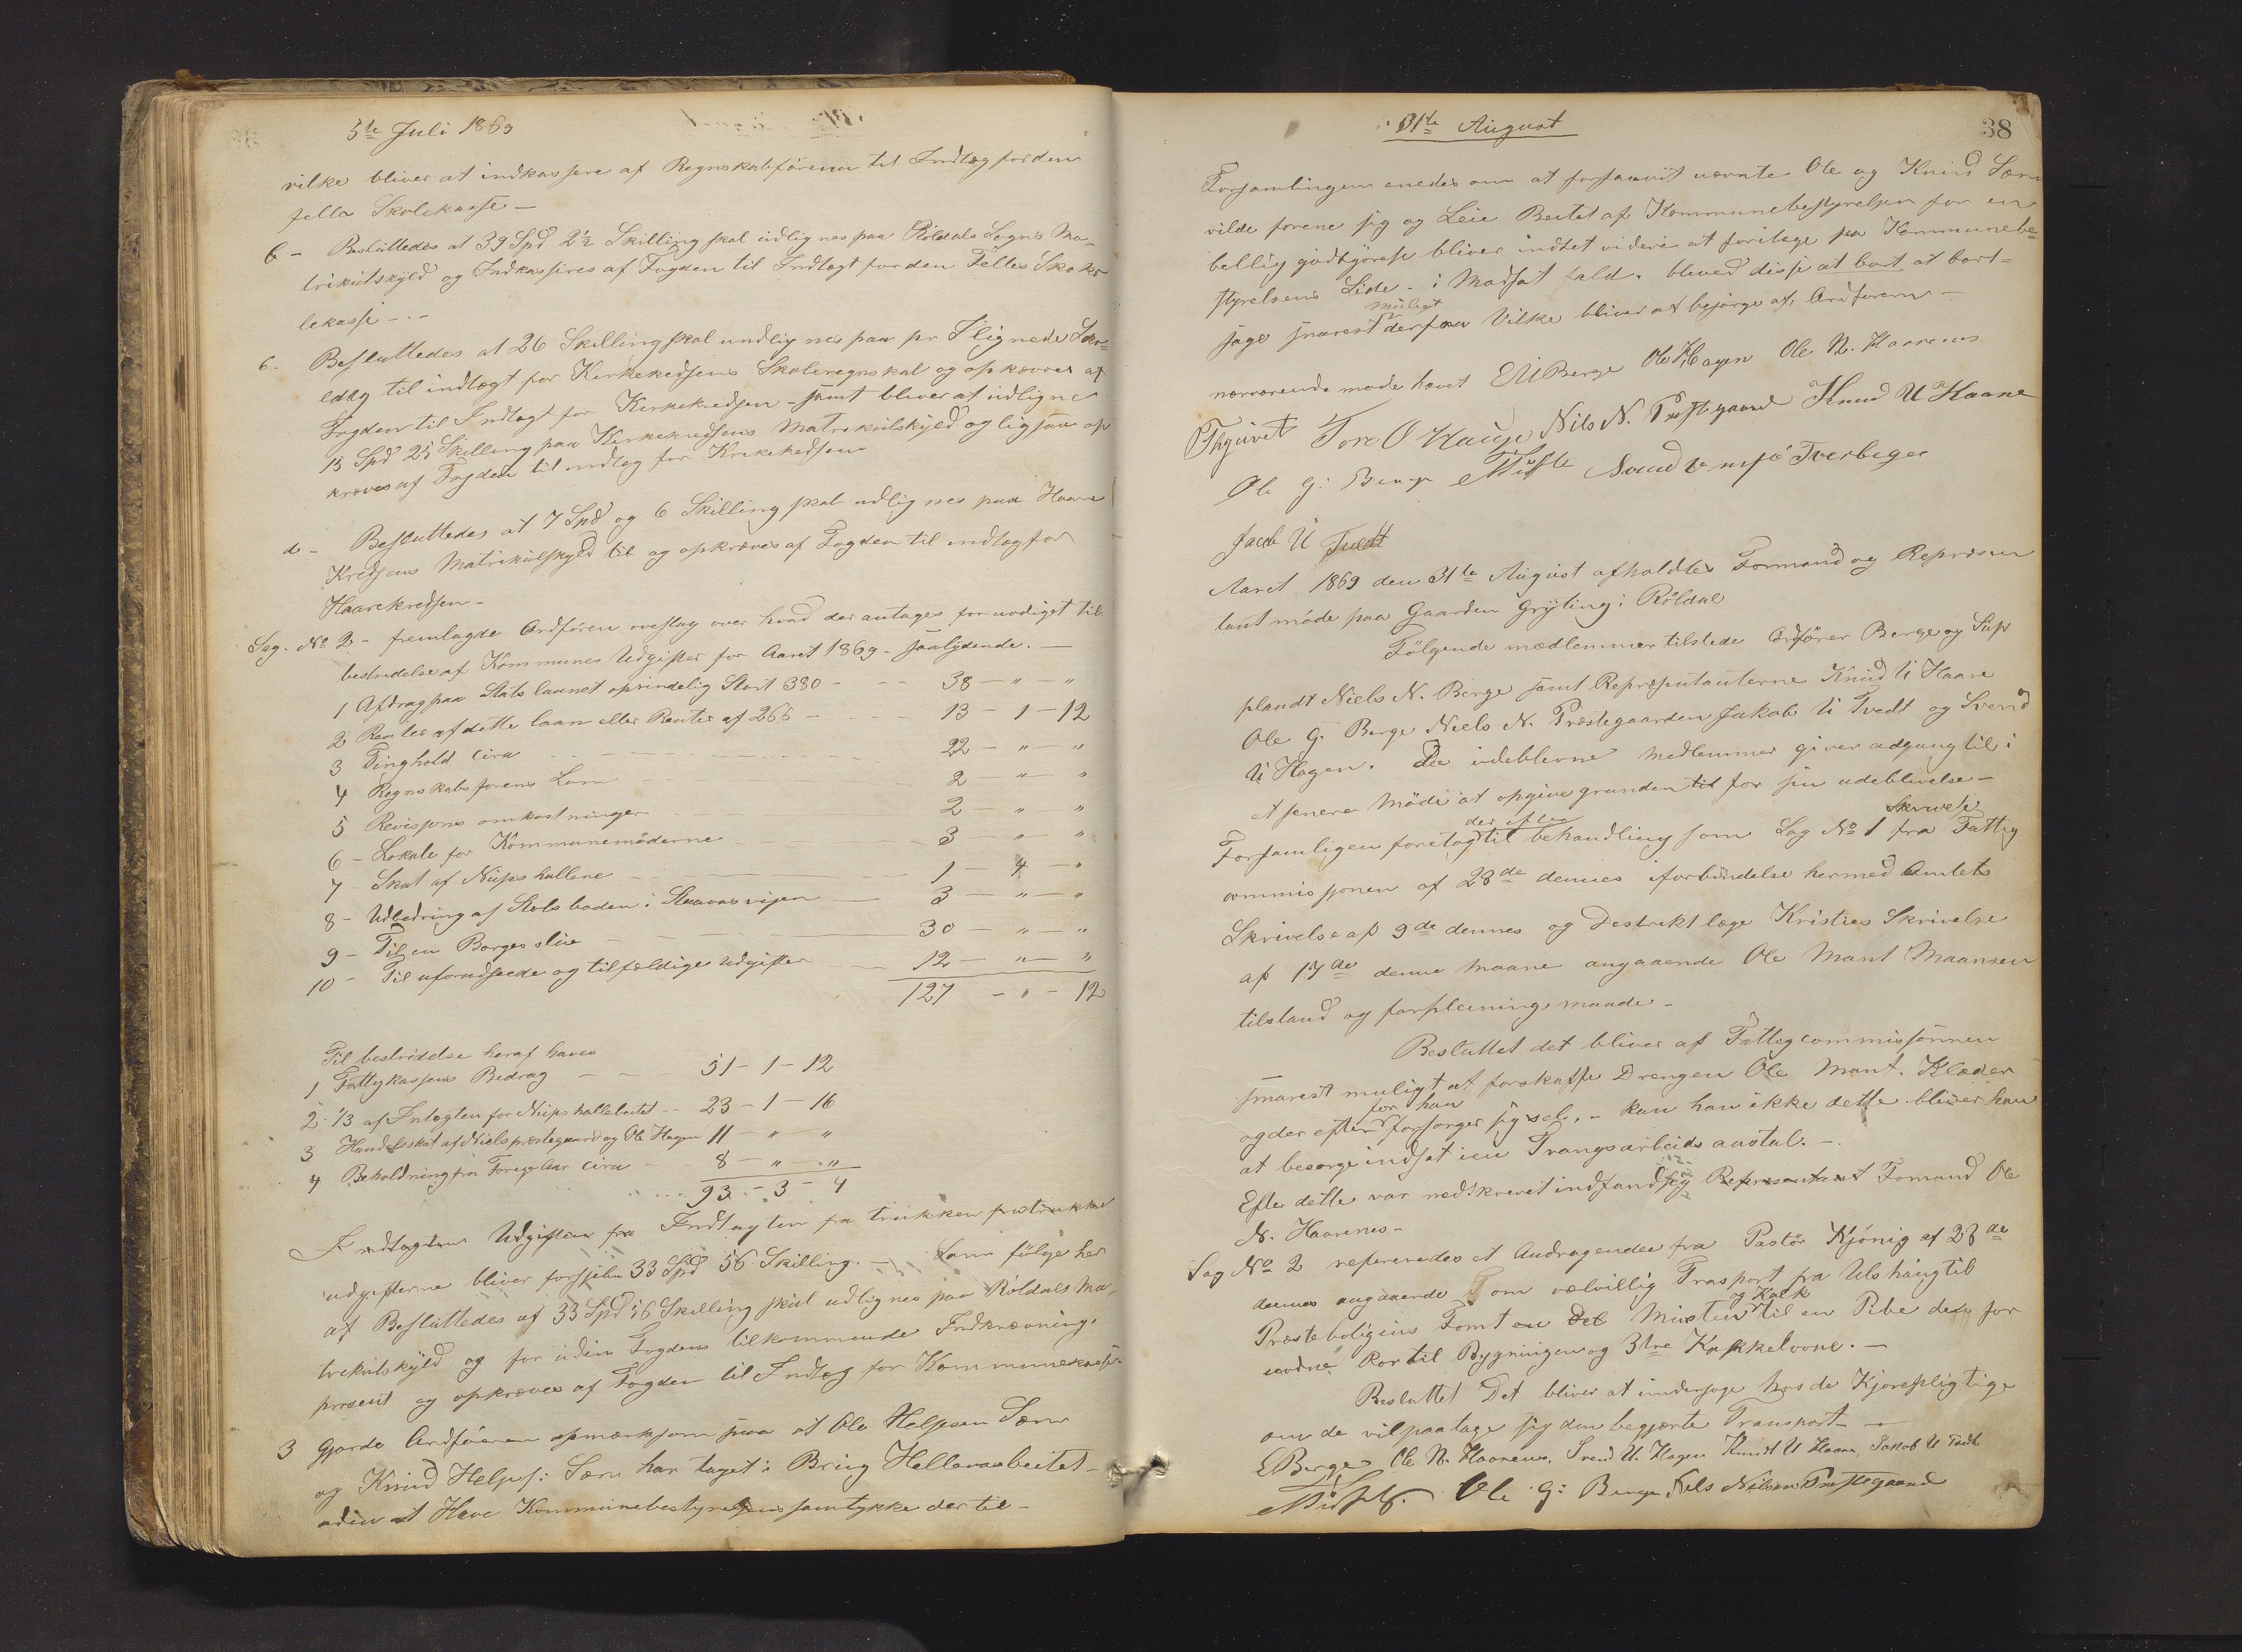 5te Juli 1869
vilke bliver at indkassere af Regnskabföreren til Indtæg for den
fella Skolekasse –
b – Besluttedes at 39 Spd 2½ Skilling skal udlignes paa Röldals Sogns Ma-
trikulskyld og Indkasseres af Fogden til Indtægt for den Felles Sko
lekasse –.–
c. Besluttedes at 26 Skilling skal undlignes paa pr Ilignede
til indtægt for Kirkekredsens Skoleregnskab og opkræves af
Fogden til Indtægt for Kirkekredsen – samt bliver at udligne
Spd Skilling paa Kirkekredsens Matrikulskyld og ligesaa op
kræves af Fogden til indtæg for Kirkekredsen
d – Besluttedes at 7 Spd og 6 Skilling skal udlignes paa Haare
Kredsens Matrikulskyld til og opkræves af Fogden til indtæg for
Haarekredsen –
Sag. No 2 – fremlagde Ordfören overslag over hvad der antages for nödigt til
bestridelse af Kommunes Udgifter for Aaret 1869 – saalydende. –
1 Afdrag paa Stats laanet oprindelig Stort 380 – – – 38 – " – "
2 Renter af dette laan eller Renter af 266 – – – 13 – 1 – 12
3 Tinghold cira – – – 22 – " – "
4 Regnskabsförens Løn – – – 2 " – "
5 Revisjons omkostninger – – – 2 – " – "
6 – Lokale for Kommunemöderne – – – 3 – " – "
7 Skat af Nupshallene – – – 1 – 4 – "
8 – Udbedring af Stolsboden i – – 3 – " – "
9 – Til en – – – 30 – " – "
10 – Til uforudseede og tilfældige Udgifter – – 12 – " – "
127 – " – 12
Til bestridelse heraf haves
1 Fattigkassens Bedrag – – – 51 – 1 – 12
2 – 1/3 af Intægten for Nupshallebeitet – – 23 – 1 – 16
3 Handelsskat af Niels præstegaard og Ole Hagen 11 – " – "
4 Beholdning fra Forrige Aar cira – – 8 – " – "
93 – 3 – 4
Indtægtens Udgifter fra Indtægten fra trukken fratrukket
udgifterne bliver forsjelen 33 Spd 56 Skilling. –
at Besluttedes at 33 Spd 56 Skilling skal udlignes paa Röldals Ma-
trikulskyld og for uden Fogdens tilkommende Indkrævnings
prosent og opkræves af Fogden til Indtæg for Kommunekassen
3 Gjorde Ordföreren opmærksom paa at Ole Helgesen Særv
og Knud Helgs: Særv har taget i Brug Hellevasbeitet –
uden at Have Kommunebestyrelsens samtykke der til –
31te August
38
Forsamlingen enedes om at forsaavit nævnte Ole og Knud Særv
vilde forene sig og Leie Beitet af Kommunebestyrelsen for en
bellig godtgjörelse bliver indtet videre at foritage fra Kommunebe-
styrelsens Side – i Modsat fald. bliver disse at bort at bort-
jage snarest muligt derfra Vilke bliver at besørge af Ordförern –
nærværende møde hævet E U Berge Ole Hagen Ole N. Haarenes
Tor O Hauge Nils N. Præstgaard Knud U Haare
Ole G: Berge
Jacob U Tvedt
Aaret 1869 den 31te August afholdtes Formand og Represen
tant møde paa Gaarden Gryting i Röldal
Fölgende mædlemmer tilstede Ordförer Berge og Sup
plandt Niels N. Berge samt Representanterne Knud U Haare
Ole G. Berge Niels N. Præstegaarden Jakob U Tvedt og Svend
U Hagen. De udeblevne medlemmer giver adgang til i
et senere Möde at opgive grunden til for sin udeblivelse –
Forsamligen foretog der efter til behandling som Sag No 1 Skrivelse fra Fattig
commissjonen af 28de dennes iforbindelse hermed Amtets
Skrivelse af 9de dennes og Destrikt læge Kristies Skrivelse
af 17de denne maane angaaende Ole Mant Maansen
tilstand og forpleinings maade –
Besluttet det bliver af Fattigcommissjonnen
snarest muligt at forskaffe Drengen Ole Mant. Klæder
og der efter for han forsorger sig sel, – kan han ikke dette bliver han
at besorge indsat i en Tvangsarbeids anstal. –.
Efter dette var nedskrevet indfandt sig Representant Formand Ole
N. Haarenes –
Sag No 2 refereredes et Andragender fra Pastör Kjönig af 28de
dennes angaaende om vælvillig Trasport fra Ulshaug til
Præsteboligens Tomt en Del Mursten og Kalk til en Pibe den for
nødne Ror til Bygningen og 3tre Kakkelovne. –
Besluttet Det bliver at undersøge hos de Kjørepligtige
om de vil paatage sig den begjærte Transport –
E Berge Ole N. Haarenes, Svend U. Hagen Knudt U Haare, Jakob U Tvedt
Ole G: Berge Nils Nilsen Præstegaard